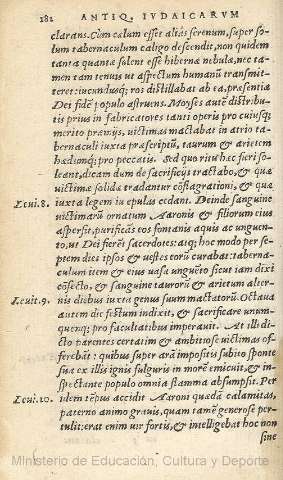 182 ANTIQ. IVDAICARVM
clarans. Cùm cælum esset aliâs serenum, super so-
lum tabernaculum caligo descendit, non quidem
tanta quanta solent esse hibernæ nebulæ, nec ta-
men tam tenuis ut aspectum humanū transmit-
teret: iucundusq; ros distillabat ab ea, præsentiæ
Dei fidē populo astruens. Moyses autē distribu-
tis prius in fabricatores tanti operis pro cuiusq;
merito præmijs, uictimas mactabat in atrio ta-
bernaculi iuxta præscriptū, taurum & arietem
hœdumq; pro peccatis. Sed quo ritu hæc fieri so-
leant, dicam dum de sacrificijs tractabo, & quæ
uictimæ solidæ tradantur cōflagrationi, & quæ
Leui.8. iuxta legem in epulas cedant. Deinde sanguine
uictimarū ornatum Aaronis & filiorum eius
aspersit, purificās eos fontanis aquis ac unguen-
to, ut Dei fierēt sacerdotes: atq; hoc modo per se-
ptem dies ipsos & uestes eorū curabat: taberna-
culum item & eius uasa unguēto sicut iam dixi
cōfecto, & sanguine taurorū & arietum alter-
Leuit.9. nis diebus iuxta genus suum mactatorū. Octaua
autem die festum indixit, & sacrificare unum-
quemq; pro facultatibus imperauit. At illi di-
cto parentes certatim & ambitiose uictimas of-
ferebāt: quibus super arā impositis subito sponte
sua ex illis ignis fulguris in morē emicuit, & in-
spectante populo omnia flamma absumpsit. Per
Leui.10. idem tēpus accidit Aaroni quædā calamitas,
paterno animo grauis, quam tamē generose per-
tulit: erat enim uir fortis, & intelligebat hoc non
sine
Ministerio de Educación, Cultura y Deporte